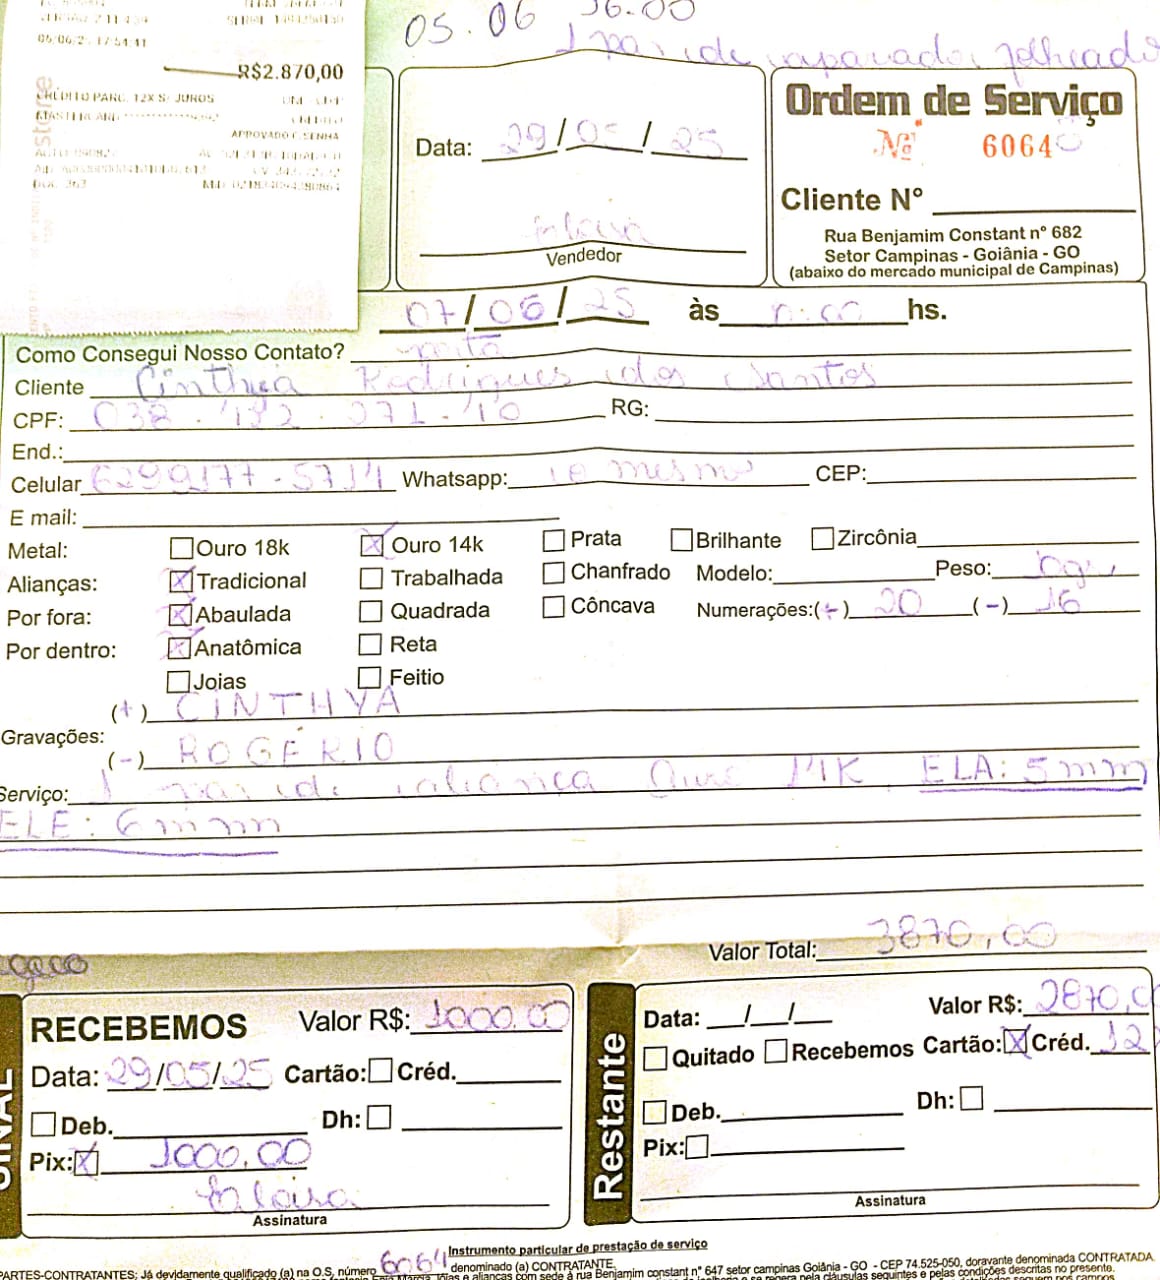 05.06 16:00
1 par de aparador folheado
05/06/2 17:54:41
R$2.870,00
CRÉDITO PARC. 12X S/ JUROS
MASTERCARD
APROVADO C/ SENHA
stone
Data: 29/05/25
Vendedor
Ordem de Serviço
Nº 6064
Cliente Nº
Rua Benjamim Constant nº 682
Setor Campinas - Goiânia - GO
(abaixo do mercado municipal de Campinas)
07/06/25 às hs.
Como Consegui Nosso Contato?
Cliente Cinthya Rodrigues dos Santos
CPF: 038.132.271-10 RG:
End.:
Celular 6299177-5714 Whatsapp: o mesmo CEP:
E mail:
Metal: Ouro 18k Ouro 14k Prata Brilhante Zircônia
Alianças: Tradicional Trabalhada Chanfrado Modelo: Peso:
Por fora: Abaulada Quadrada Côncava Numerações:(+) 20 (-) 16
Por dentro: Anatômica Reta
Joias Feitio
(+) CINTHYA
Gravações:
(-) ROGÉRIO
Serviço: 1 par de aliança Ouro 14K ELA: 5mm
ELE: 6mm
Valor Total: 3870,00
RECEBEMOS Valor R$: 1000.00
Data: 29/05/25 Cartão: Créd.
Deb. Dh:
Pix: 1000,00
Assinatura
Restante
Data: / / Valor R$: 2870,0
Quitado Recebemos Cartão: Créd. 12
Deb. Dh:
Pix:
Assinatura
Instrumento particular de prestação de serviço
PARTES-CONTRATANTES: Já devidamente qualificado (a) na O.S, número 6064 denominado (a) CONTRATANTE,
e alianças com sede à rua Benjamim constant nº 647 setor campinas Goiânia - GO - CEP 74.525-050, doravante denominada CONTRATADA